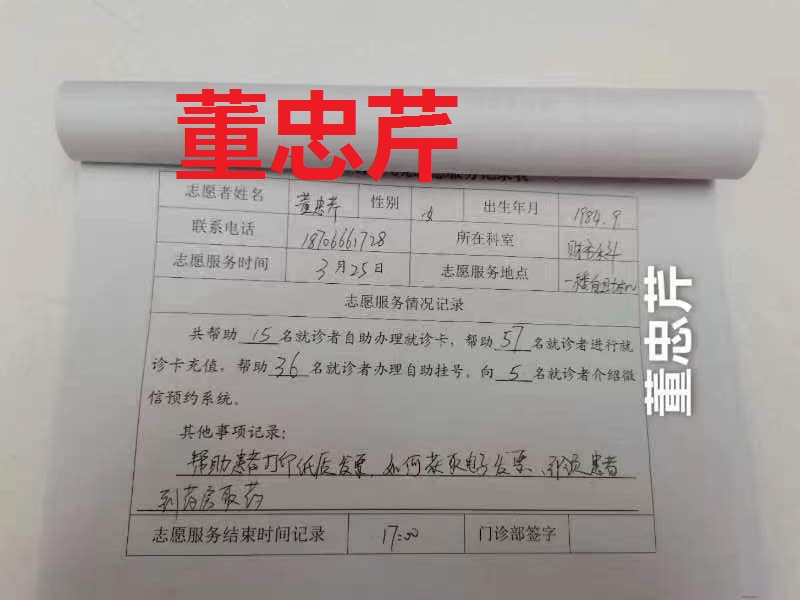 董忠芹
志愿者姓名 董忠芹 性别 女 出生年月 1984.9
联系电话 18706661728 所在科室 财务科
志愿服务时间 3月25日 志愿服务地点 一楼自助
志愿服务情况记录
共帮助 15 名就诊者自助办理就诊卡，帮助 57 名就诊者进行就
诊卡充值，帮助 36 名就诊者办理自助挂号，向 5 名就诊者介绍微
信预约系统。
其他事项记录：
帮助患者打印纸质发票、如何获取电子发票、引领患者
到药房取药
志愿服务结束时间记录 17:00 门诊部签字
董忠芹